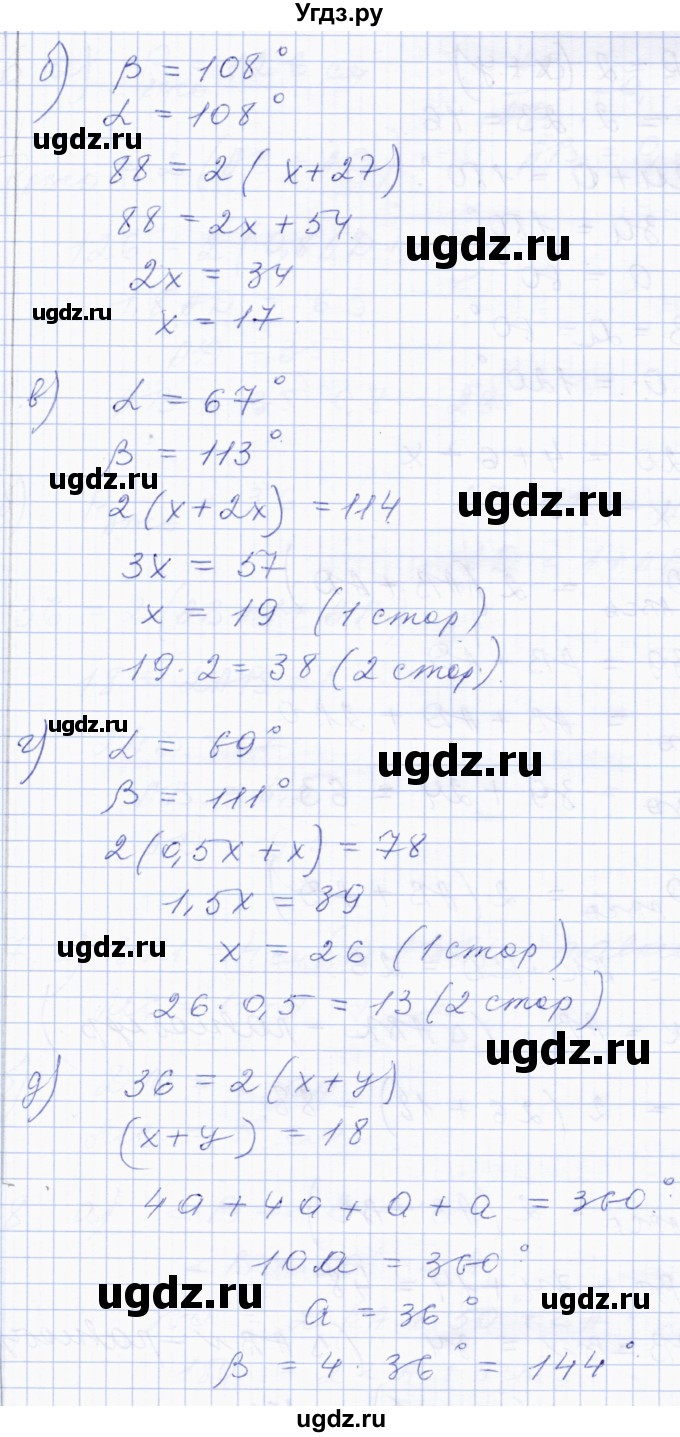 Угдз.ру
б) β = 108°
α = 108°
ugdz.ru
88 = 2( x+27)
88 = 2x + 54
ugdz.ru
2x = 34
ugdz.ru
x = 17.
в) α = 67°
β = 113°
ugdz.ru
2(x+2x) = 114
ugdz.ru
3x = 57
x = 19 (1 стор)
19·2 = 38 (2 стор).
ugdz.ru
г) α = 69°
ugdz.ru
β = 111°
2(0,5x + x) = 78
1,5x = 39
ugdz.ru
x = 26 (1 стор)
26·0,5 = 13 (2 стор)
ugdz.ru
д) 36 = 2(x+y)
(x+y) = 18
4a + 4a + a + a = 360°
10a = 360°
ugdz.ru
ugdz.ru
a = 36°
β = 4·36° = 144°
ugdz.ru